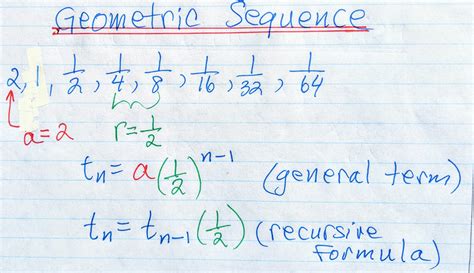 Geometric Sequence
2, 1, 1/2, 1/4, 1/8, 1/16, 1/32, 1/64
a=2 r=1/2
tₙ= a(1/2)ⁿ⁻¹ (general term)
tₙ= tₙ₋₁(1/2) (recursive
formula)